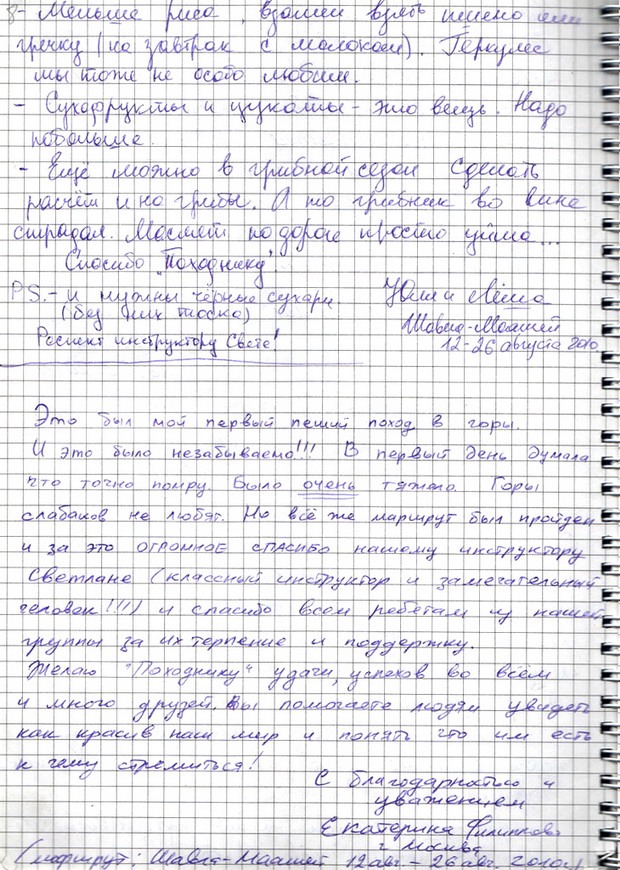 - Меньше риса, взамен взять пшено или
гречку (на завтрак с молоком). Геркулес
мы тоже не особо любим.
- Сухофрукты и цукаты - это вещь. Надо
побольше.
- Ещё можно в грибной сезон сделать
расчёт и на грибы. А то грибник во
страдал. Маслят по дороге просто уйма...
Спасибо "Походнику"!
P.S. - и нужны чёрные сухари.
(без них тоска)
Респект инструктору Свете!
Юля и Лёша
Шавла-Маашей
12-26 августа 2010.
Это был мой первый пеший поход в горы.
И это было незабываемо!!! В первый день думала
что точно помру. Было очень тяжело. Горы
слабаков не любят. Но всё же маршрут был пройден
и за это ОГРОМНОЕ СПАСИБО нашему инструктору
Светлане (классный инструктор и замечательный
человек!!!) и спасибо всем ребятам из нашей
группы за их терпение и поддержку.
Желаю "Походнику" удачи, успехов во всём
и много друзей. Вы помогаете людям увидеть
как красив наш мир и понять что им есть
к чему стремиться!
С благодарностью и
уважением
Екатерина
г. Москва
(маршрут: Шавла-Маашей 12 авг. - 26 авг. 2010г.)